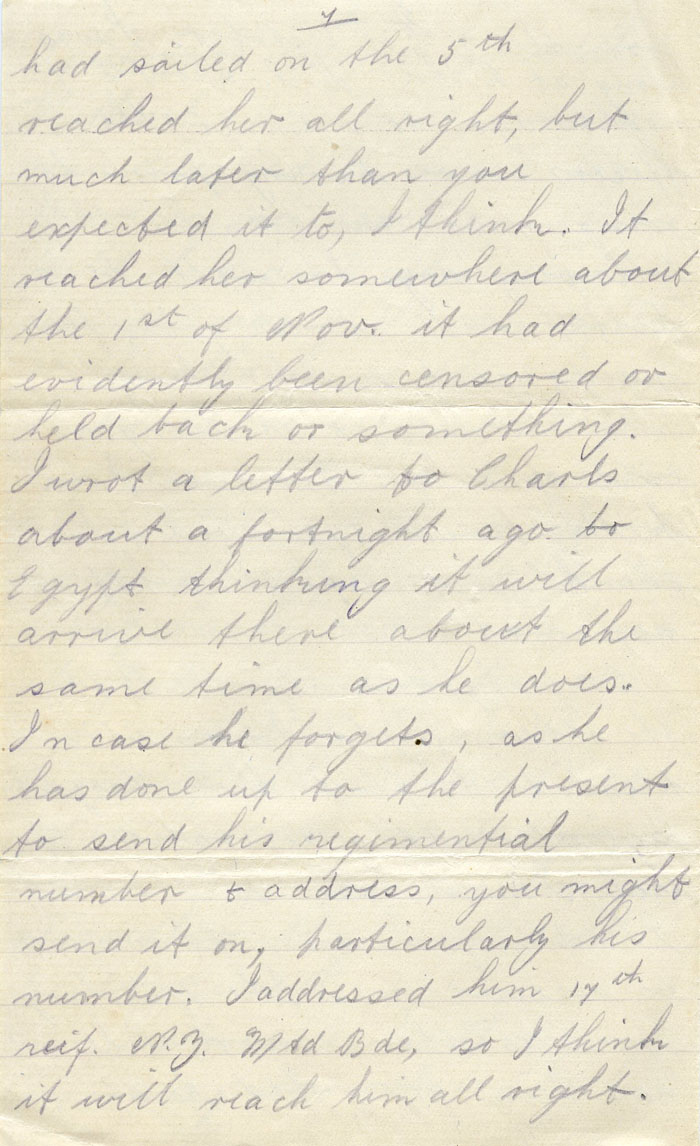 had sailed on the 5th
reached her all right, but
much later than you
expected it to, I think. It
reached her somewhere about
the 1st of Nov. it had
evidently been censored or
held back or something.
I wrot a letter to Charls
about a fortnight ago to
Egypt thinking it will
arrive there about the
same time as he does.
In case he forgets, as he
has done up to the present
to send his regimential
number & address, you might
send it on, particularly his
number. I addressed him 17th
reif. N.Z. Mtd Bde, so I think
it will reach him all right.